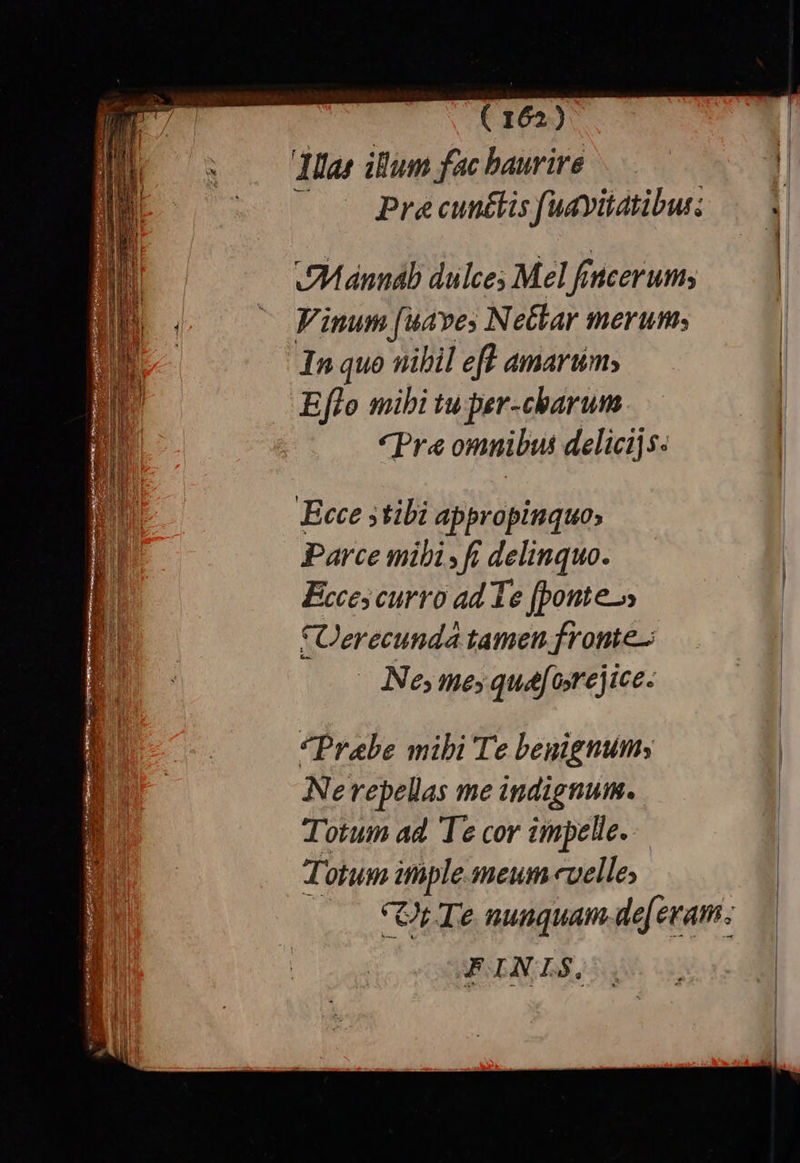 (162)
Illas illum fac haurire
Præ cunctis ſuavitatibus:
Mannáh dulce, Mel ſincerum,
Vinum ſuave, Nectar merum,
In quo nihil eſt amarum,
Eſto mihi tu per-charum
Præ omnibus delicijs.
Ecce, tibi appropinquo,
Parce mihi, ſi delinquo.
Ecce, curro ad Te ſponte,
Verecundâ tamen fronte:
Ne, me, quæſo, rejice.
Præbe mihi Te benignum,
Ne repellas me indignum.
Totum ad Te cor impelle.
Totum imple meum velle,
Ut Te nunquam deſeram.
FINIS.